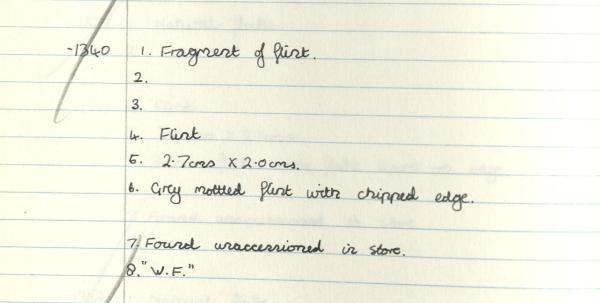 -1340 1. Fragment of flint.
2.
3.
4. Flint
5. 2.7cms X 2.0cms.
6. Grey mottled flint with chipped edge.
7. Found unaccessioned in store.
8. "W.F."